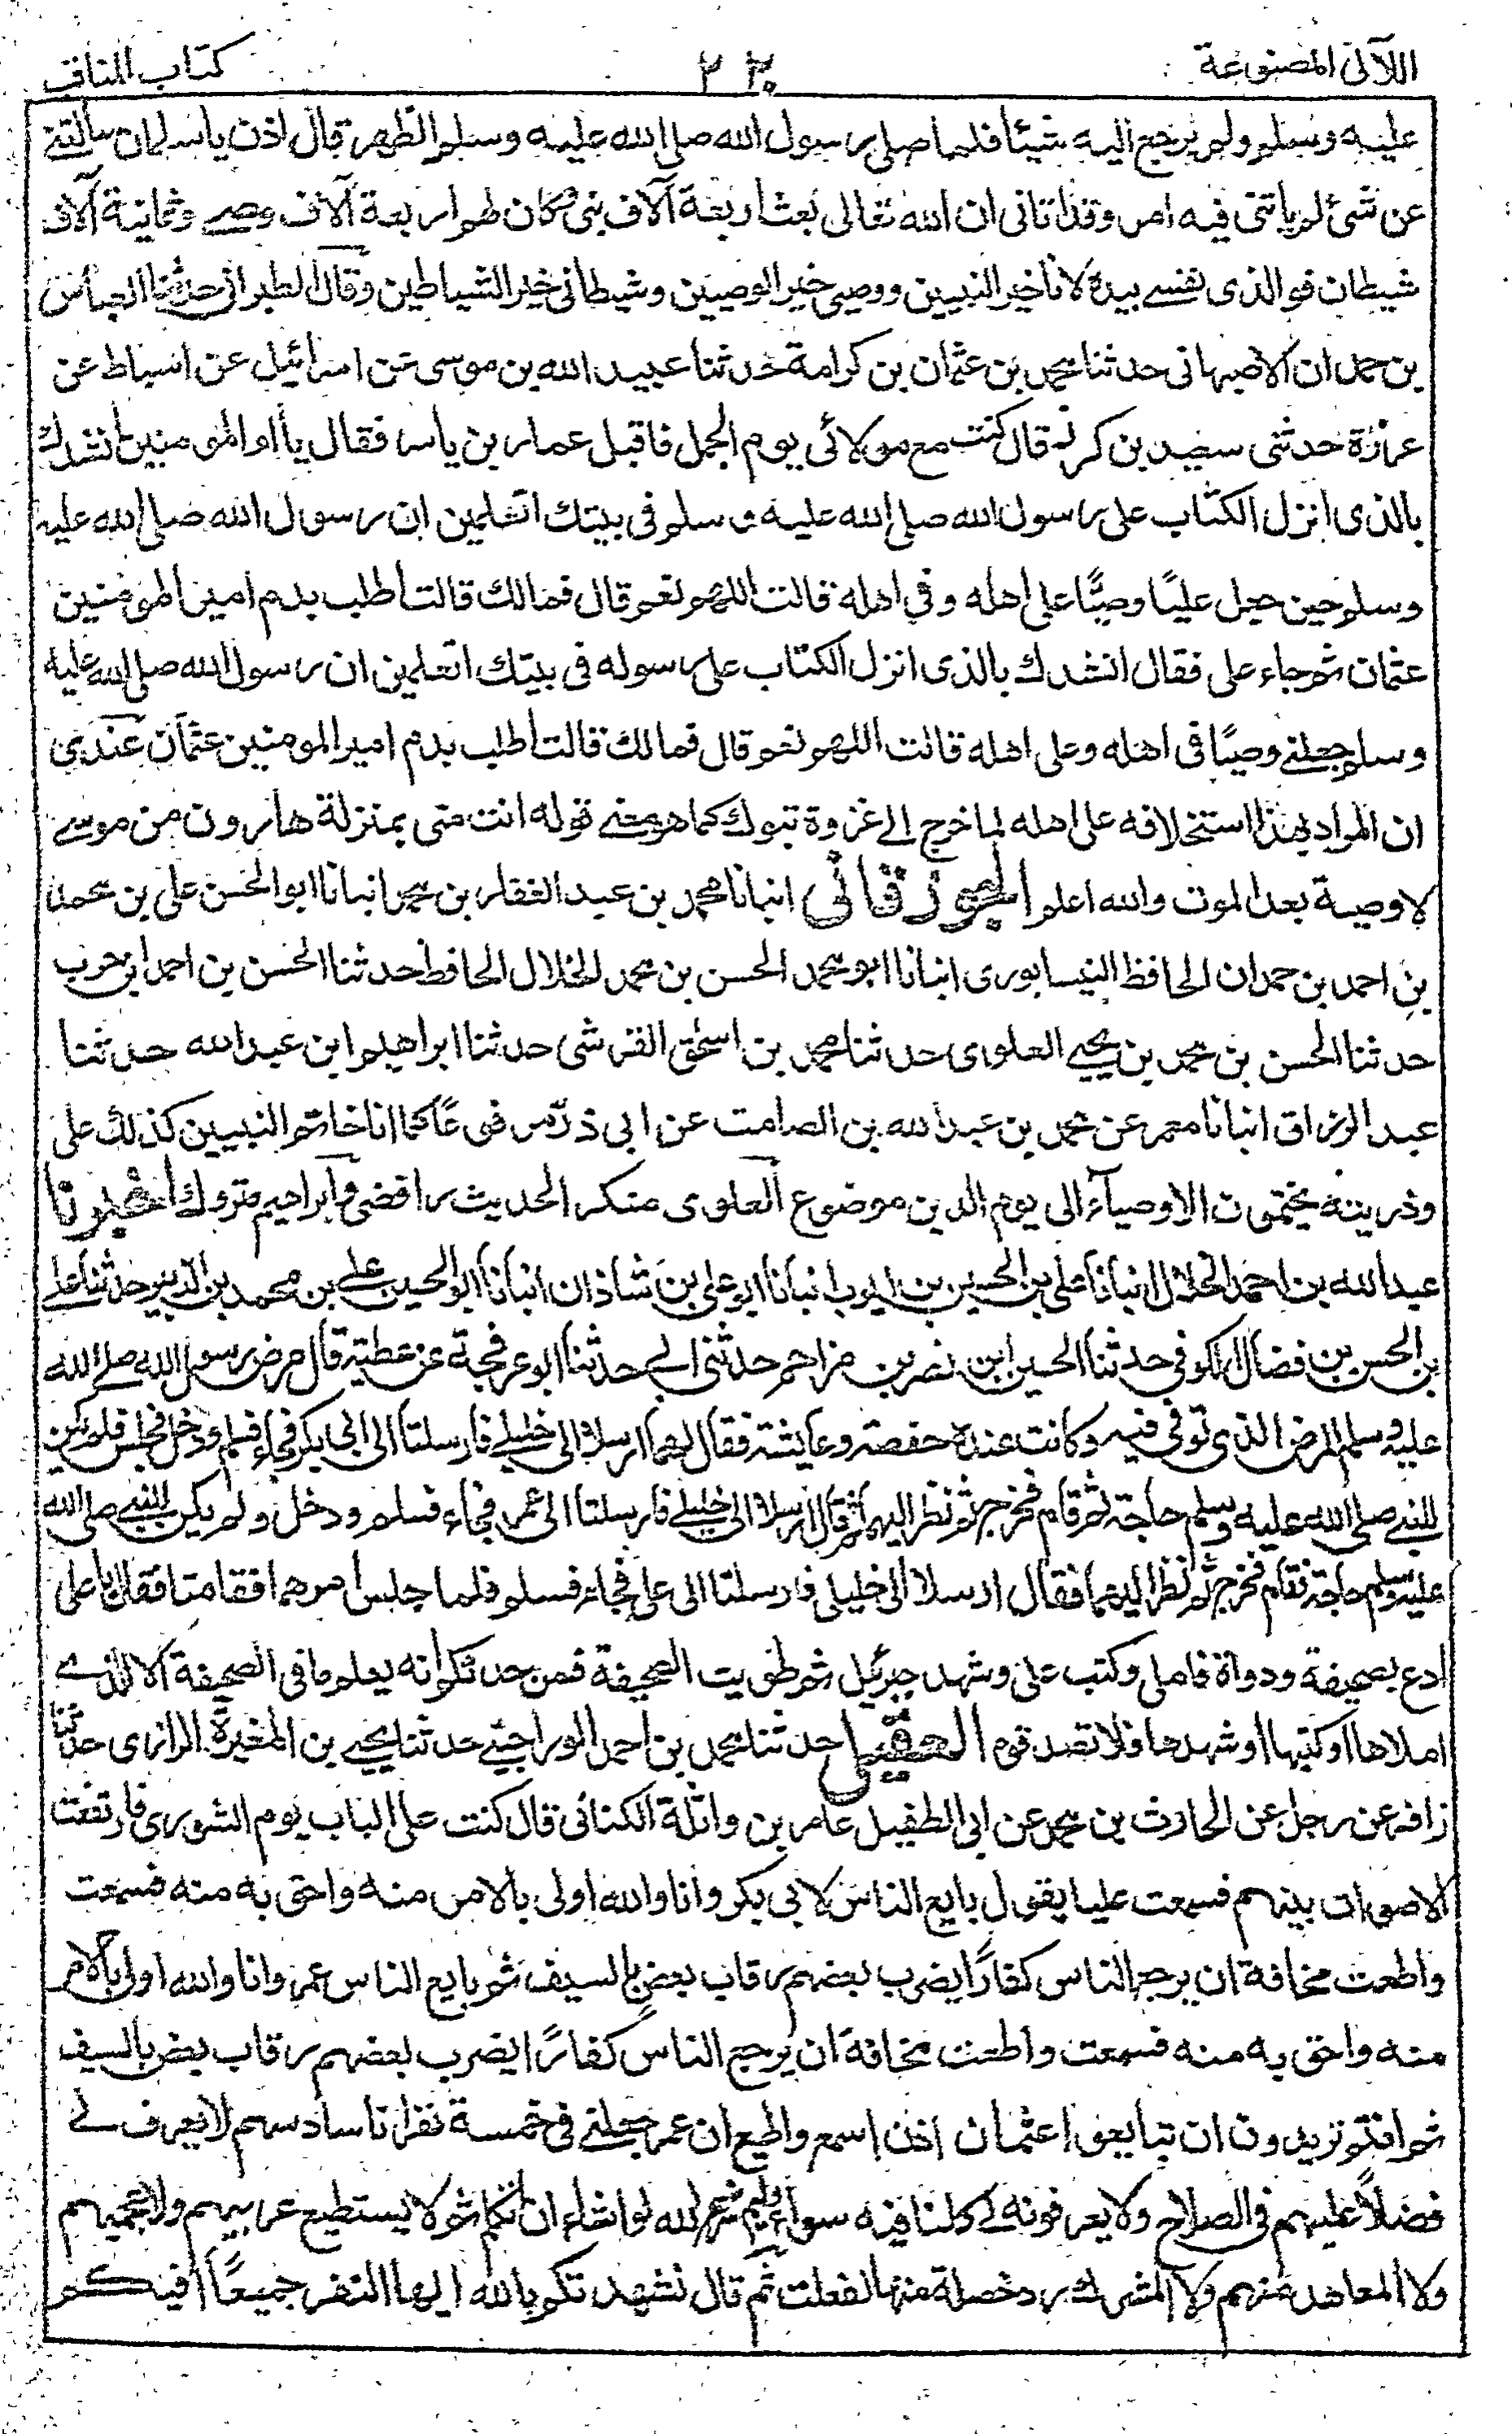 اللآلى المصنوعة
٢٢٠
كتاب المناقب
عليه وسلم ولم يرجع اليه شيئا فلما صلى رسول الله صلى الله عليه وسلم الظهر قال اذن يا سلمان سألتنى
عن شئ لم ياتنى فيه امر وقد اتانى ان الله تعالى بعث اربعة آلاف نبى وكان لهم اربعة آلاف وصى وثمانية آلاف
شيطان فو الذى نفسى بيده لانا خير النبيين ووصيى خير الوصيين وشيطانى خير الشياطين وقال الطبرانى حدثنا العباس
بن حمدان الاصبهانى حدثنا محمد بن عثمان بن كرامة حدثنا عبيد الله بن موسى عن اسرائيل عن اسباط عن
عزرة حدثنى سعيد بن كرز قال كنت مع مولائى يوم الجمل فاقبل عمار بن ياسر فقال يا ام المومنين انشدك
بالذى انزل الكتاب على رسول الله صلى الله عليه وسلم فى بيتك اتعلمين ان رسول الله صلى الله عليه
وسلم حين جعل عليًا وصيًّا على اهله وفى اهله قالت اللهم نعم قال فمالك قالت اطلب بدم امير المومنين
عثمان ثم جاء على فقال انشدك بالذى انزل الكتاب على رسوله فى بيتك اتعلمين ان رسول الله صلى الله عليه
وسلم جعلنى وصيًا فى اهله وعلى اهله قالت اللهم نعم قال فمالك قالت اطلب بدم امير المومنين عثمان عندى
ان المراد بهذا استخلافه على اهله لما خرج الى غزوة تبوك كما هو معنى قوله انت منى بمنزلة هارون من موسى
لا وصية بعد الموت والله اعلم الجوزقانى انبانا محمد بن عبد الغفار بن محمد انبانا ابو الحسن على بن محمد
بن احمد بن حمدان الحافظ النيسابورى انبانا ابو محمد الحسن بن محمد الخلال الحافظ حدثنا الحسن بن احمد ابن حرب
حدثنا الحسن بن محمد بن يحيى العلوى حدثنا محمد بن اسحٰق القرشى حدثنا ابراهيم ابن عبد الله حدثنا
عبد الرزاق انبانا معمر عن محمد بن عبد الله بن الصامت عن ابى ذر مرفوعًا كما انا خاتم النبيين كذلك على
وذريته يختمون الاوصيآء الى يوم الدين موضوع العلوى منكر الحديث رافضى وابراهيم متروك اخبرنا
عبد الله بن احمد الخلال انبانا على بن الحسين بن ايوب انبانا ابو على بن شاذان انبانا ابو الحسين على بن محمد بن الزبير حدثنا على
بن الحسن بن فضال الكوفى حدثنا الحسين ابن نصر بن مزاحم حدثنى ابى حدثنا ابو عرفجة عن عطية قال مرض رسول الله صلى الله
عليه وسلم المرض الذى توفى فيه وكانت عنده حفصة وعايشة فقال لهما ارسلا الى خليلى فارسلتا الى ابى بكر فجاء فسلم ودخل فجلس فلم يكن
للنبى صلى الله عليه وسلم حاجة ثم قام فخرج ثم نظر اليهما ثم قال ارسلا الى خليلى فارسلتا الى عمر فجاء فسلم ودخل ولم يكن للنبى صلى الله
عليه وسلم حاجة فقام فخرج ثم نظر اليهما فقال ارسلا الى خليلى فارسلتا الى على فجاء فسلم فلما جلس امرهما فقامتا فقال يا على
ادع بصحيفة ودواة فاملى وكتب على وشهد جبرئيل ثم طويت الصحيفة فمن حدثكم انه يعلم ما فى الصحيفة الا الذى
املاها او كتبها او شهدها فلا تصدقوه العقيلى حدثنا محمد بن احمد الوراجينى حدثنا يحيى بن المغيرة الرازى حدثنا
زافر عن رجل عن الحارث بن محمد عن ابى الطفيل عامر بن واثلة الكنانى قال كنت على الباب يوم الشورى فارتفعت
الاصوات بينهم فسمعت عليا يقول بايع الناس لابى بكر وانا والله اولى بالامر منه واحق به منه فسمعت
واطعت مخافة ان يرجع الناس كفارًا يضرب بعضهم رقاب بعض بالسيف ثم بايع الناس عمر وانا والله اولى بالامر
منه واحق به منه فسمعت واطعت مخافة ان يرجع الناس كفارًا يضرب بعضهم رقاب بعض بالسيف
ثم انتم تريدون ان تبايعوا عثمان اذن اسمع واطيع ان عمر جعلنى فى خمسة نفر انا سادسهم لا يعرف لى
فضلاً عليهم فى الصلاح ولا يعرفونه لى كلنا فيه سواء وايم الله لو اشاء ان اتكلم ثم لا يستطيع عربيهم ولا عجميهم
ولا المعاهد منهم ولا المشرك رد خصلة منها لفعلت ثم قال نشهدتكم بالله ايها النفر جميعًا افيكم